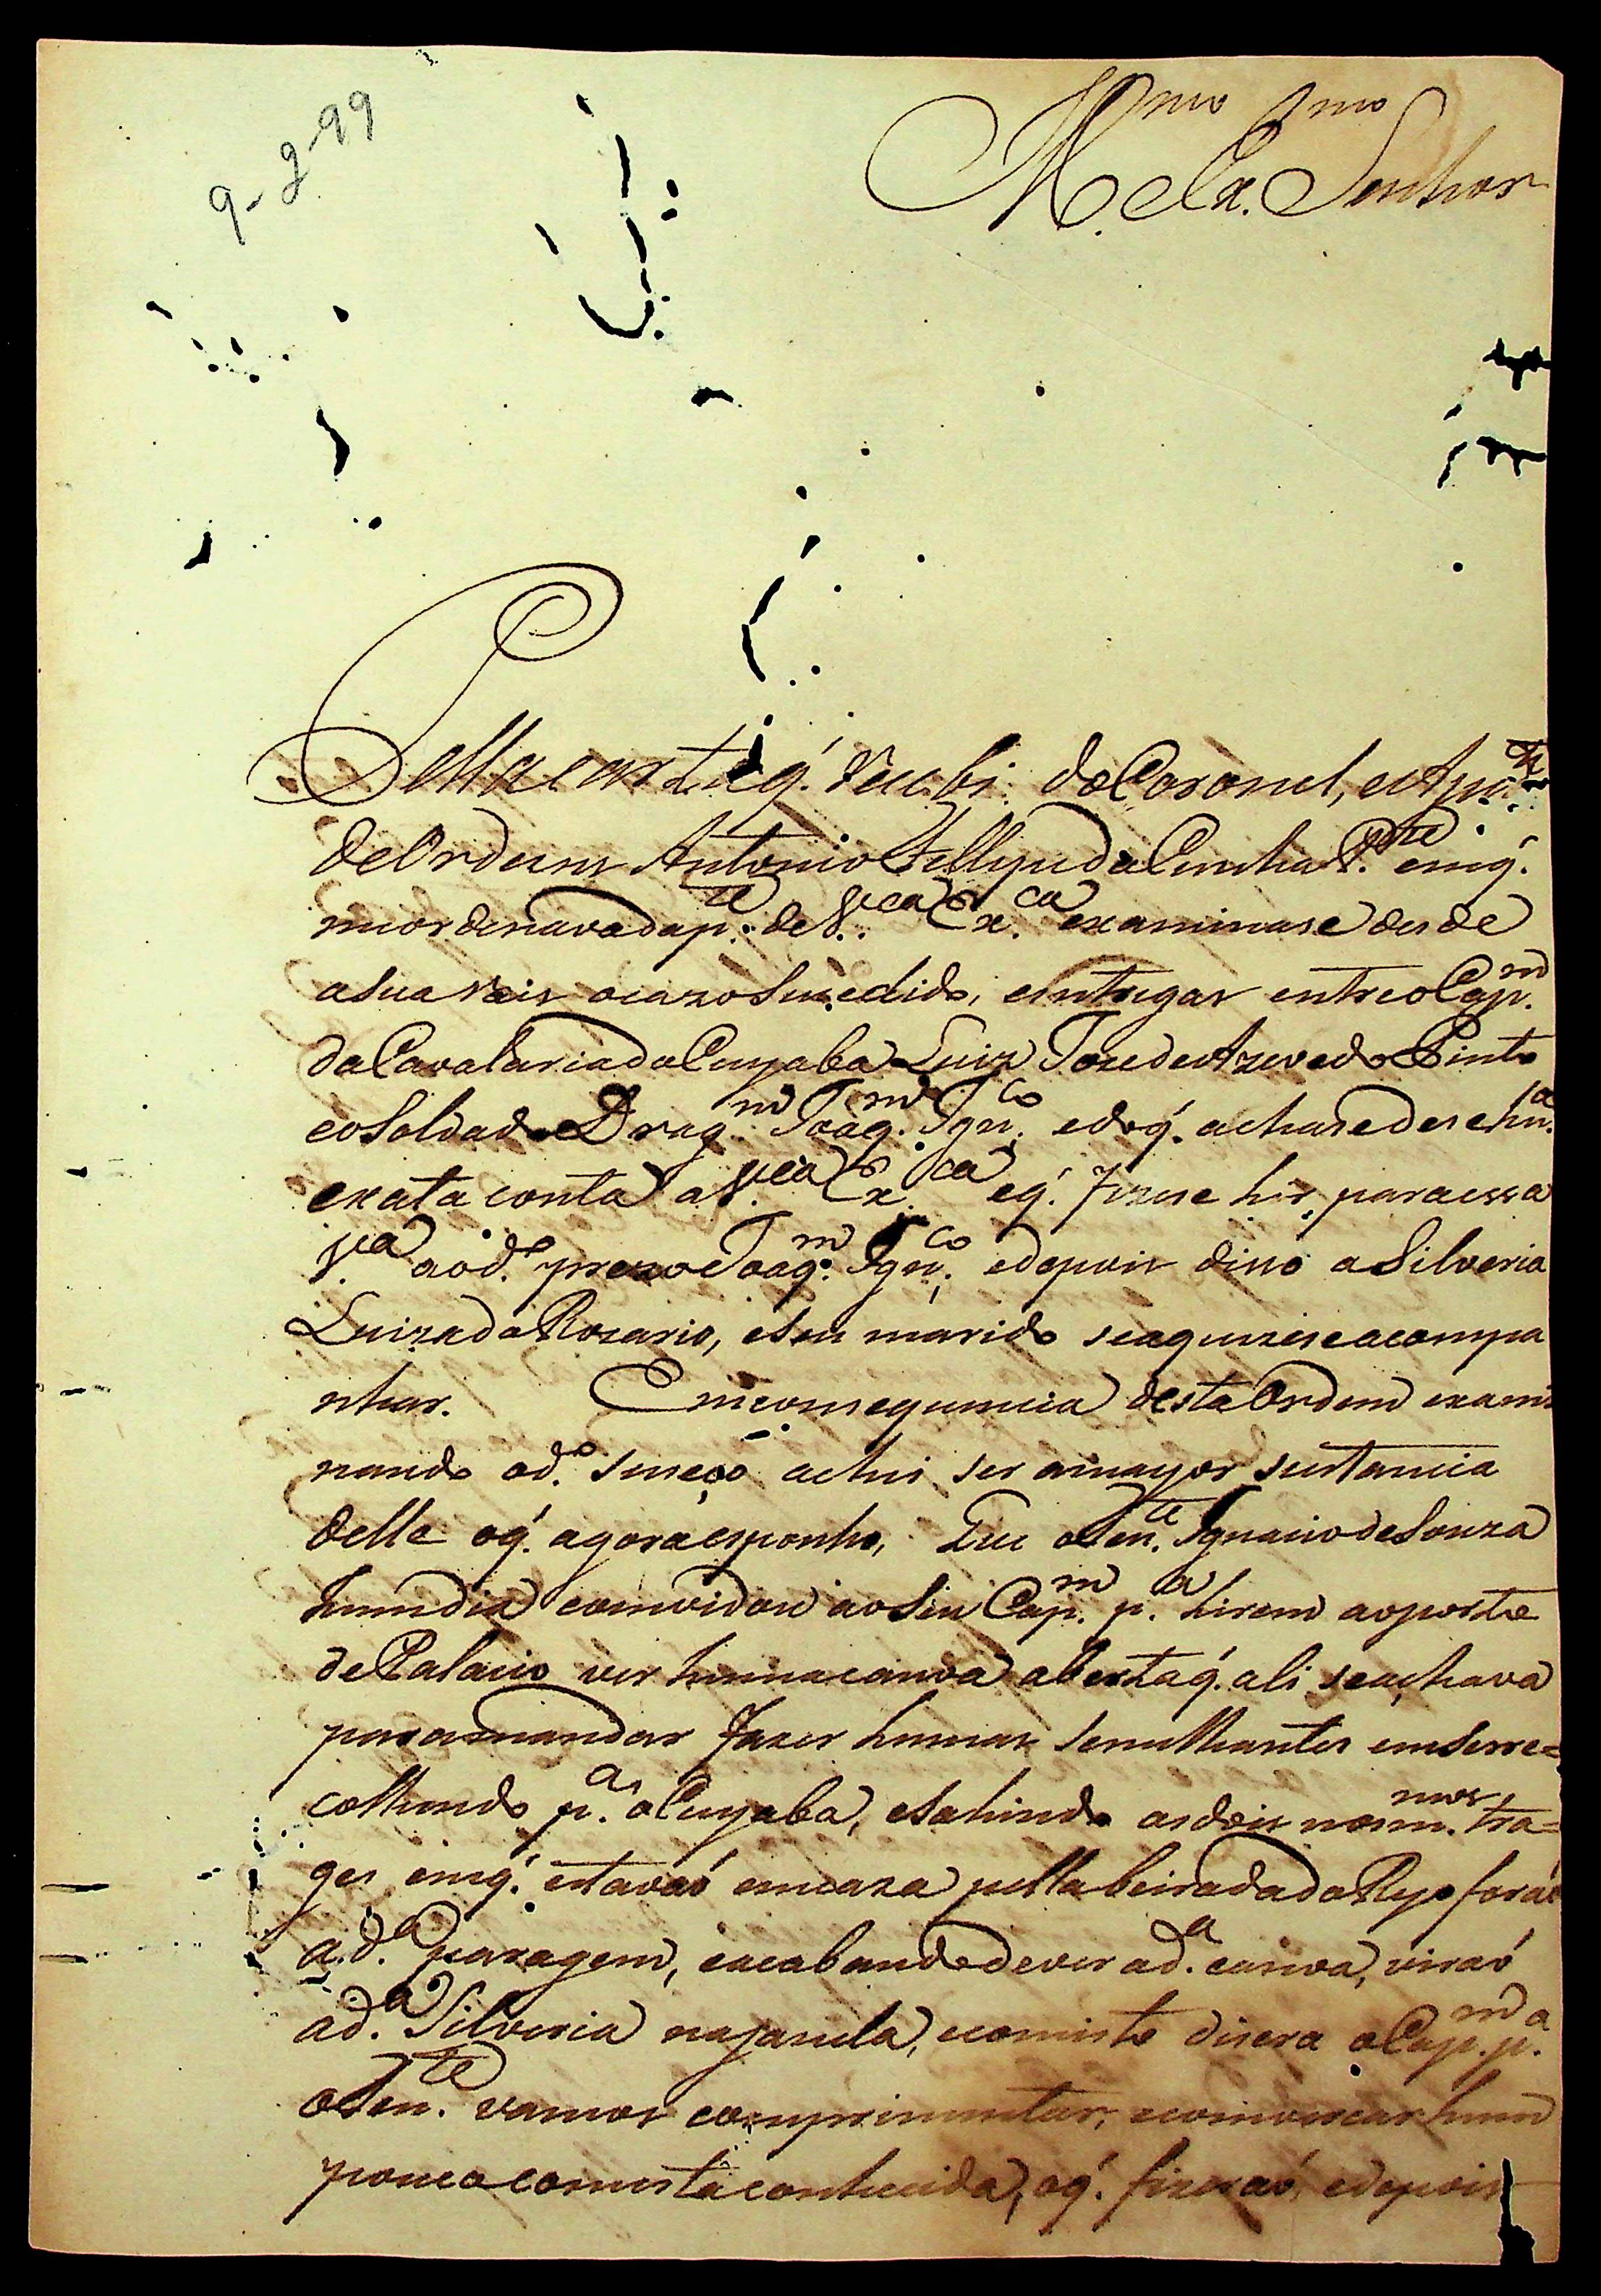 9-2-99
Ill.mo e Ex.mo Senhor
Pella carta q.' recebi do Coronel, e Aju.te
de Ordens Antonio Fellipe da Cunha P.te em q.'
me ordenava da p.te de V.ca Ex.ca examinase des de
a sua rais o cazo sucedido, e intrigas entre o Cap.m
da Cavalaria do Cuyaba Luiz Joze de Azevedo Pinto
e o Soldado Drag.m Joaq.m Ign.co e do q.' achase dese hu.a
exata conta a V.ca Ex.ca e q.' fizese hir para essa
V.a ao d.o prezo Joaq.m Ign.co e depois disso a Silveria
Luiza do Rozario, e seu marido se a quizese acompa
nhar. Em consequencia desta Ordem exami
nando o d.o suceço achei ser a mayor sustancia
delle o q.' agora esponho, Que o Ten.te Ignacio de Souza
hum dia comvidou ao Seu Cap.m p.a hirem ao porto
de Palacio ver huma canoa aberta q.' ali se achava
para mandar fazer humas semilhantes em se rre=
colhendo p.a o Cuyaba, e sahindo os dois nos m.mos tra=
ges em q.' estavaó em caza pella beirada do Ryo foraó
a d.a paragem, e acabando de ver a d.a canoa, viraó
a d.a Silveria na janela, e com isto disera o Cap.m p.a
o Ten.te vamos comprimentar, e comvercar hum
pouco com esta conhecida, o q.' fizeraó, e depois